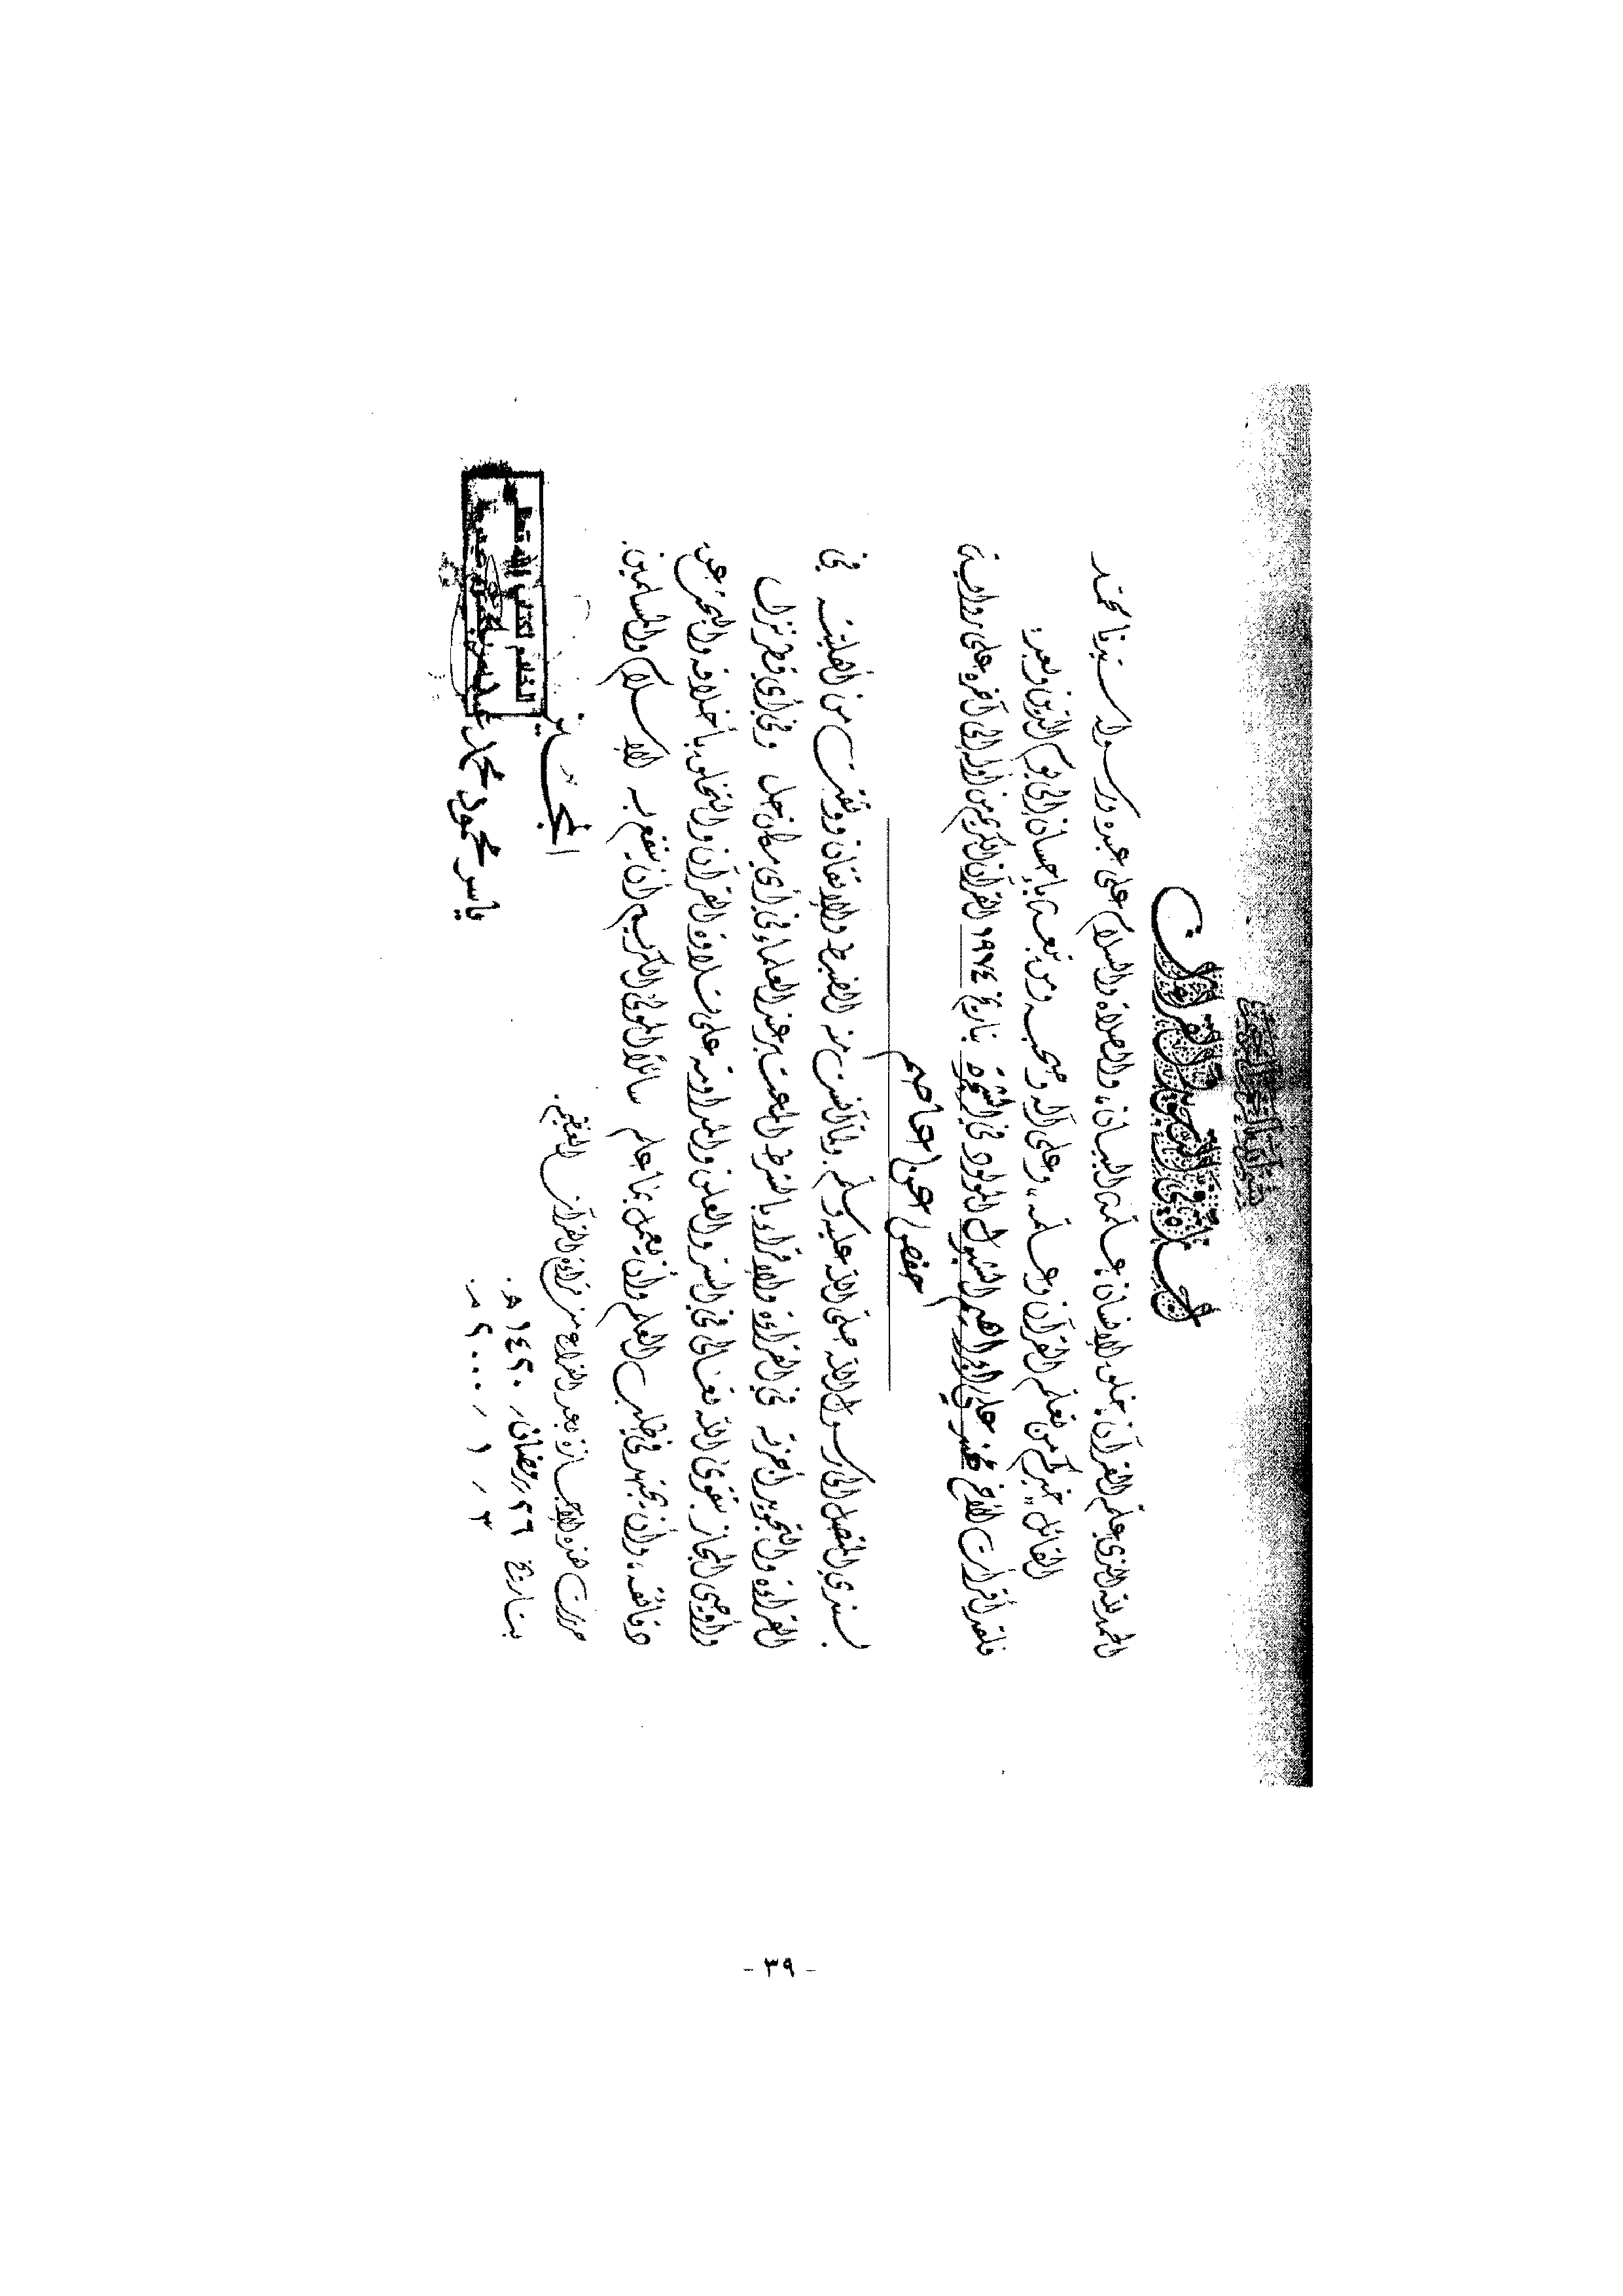 بسم الله الرحمن الرحيم
إجازة في التجويد والقرآن
الحمد لله الذي علم القرآن خلق الإنسان علمه البيان، والصلاة والسلام على عبده ورسوله سيدنا محمد
القائل "خيركم من تعلم القرآن وعلمه"، وعلى آله وصحبه ومن تبعه بإحسان إلى يوم الدين وبعد:
فلقد أقرأت الأخ محمد علي إبراهيم الشبول المولود في الشجرة بتاريخ ١٩٧٤ القرآن الكريم من أوله إلى آخره على رواية
حفص عن عاصم
بسندي المتصل إلى رسول الله صلى الله عليه وسلم ولما آنست منه الضبط والإتقان ووثقت من أهليته في
القراءة والتجويد أجزته في القراءة والإقراء بالشرط المعتبر عند العلماء في أي مكان حل وفي أي قطر نزل
وأوصي المجاز بتقوى الله تعالى في السر والعلن والمداومة على تلاوة القرآن والتخلق بأخلاقه والبحث عن
دقائقه، وأن يجتهد في طلب العلم وأن يعمل بما علم سائلاً المولى الكريم أن ينفع به الإسلام والمسلمين.
حررت هذه الإجازة بعد الفراغ من قراءة القرآن العظيم.
بتاريخ ٢٦ رمضان ١٤٢٠ هـ.
٣ / ١ / ٢٠٠٠ م.
المجيز
ياسر محمود محمد
- ٣٩ -